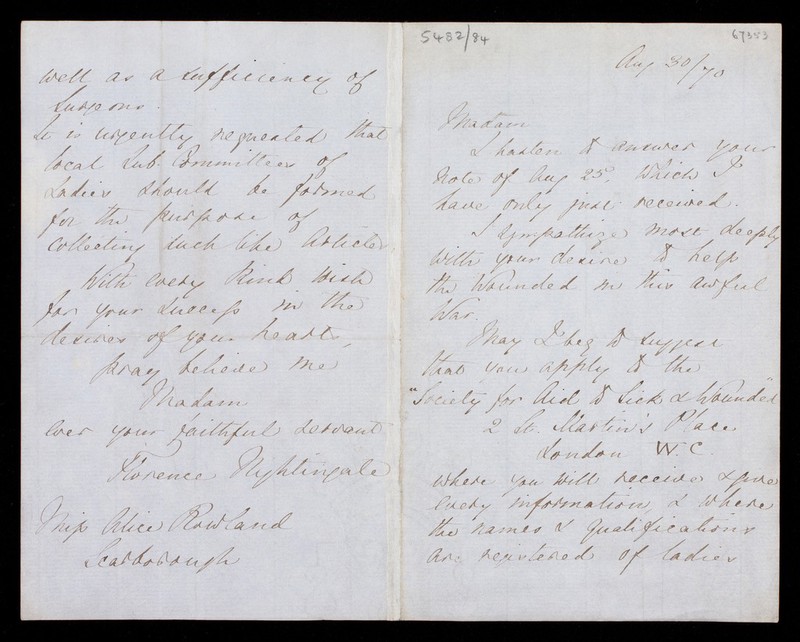 5482/84
67353
Aug 30/70
Madam
I hasten to answer your
note of Aug 25, which I
have only just received.
I sympathize most deeply
with your desire to help
the Wounded in this awful
War.
May I beg to suggest
that you apply to the
"Society for Aid to Sick & Wounded"
2 St. Martin's Place
London W.C.
where you will receive
every information, & where
the names & qualifications
are registered of ladies
well as a sufficiency of
Surgeons.
It is urgently requested that
local Sub-Committees of
Ladies should be formed
for the purpose of
collecting such like articles.
With every kind wish
for your success in the
desires of your heart,
pray believe me
Madam
ever your faithful servant
Florence Nightingale
Miss Alice Rowland
Scarborough